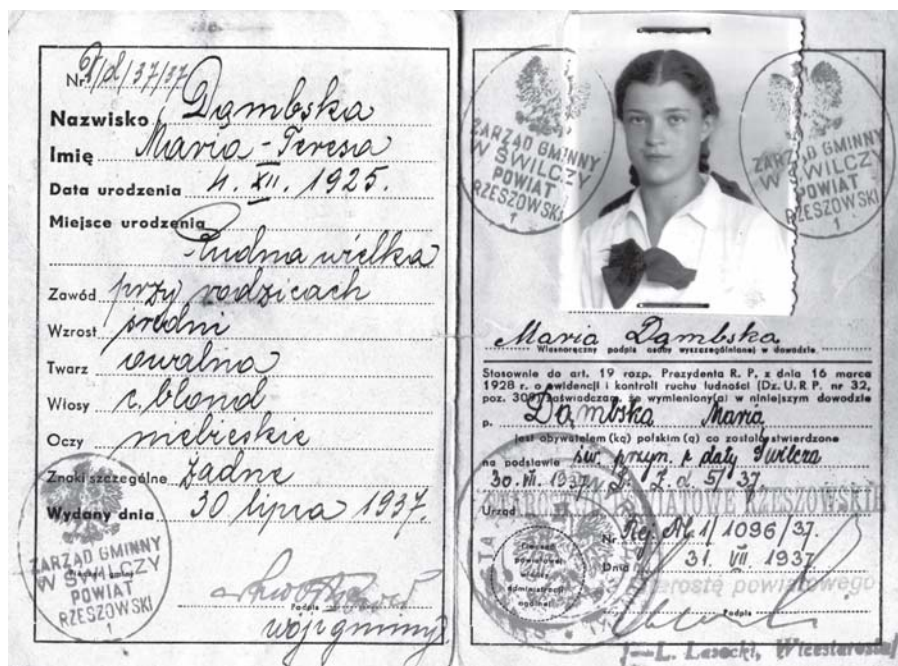 Nr 8/d/37/37
Nazwisko Dąmbska
Imię Maria-Teresa
Data urodzenia 4. XII. 1925.
Miejsce urodzenia
Rudna wielka
Zawód przy rodzicach
Wzrost średni
Twarz owalna
Włosy c. blond
Oczy niebieskie
Znaki szczególne żadne
Wydany dnia 30 lipca 1937.
ZARZĄD GMINNY
W ŚWILCZY
POWIAT
RZESZOWSKI
1
Podpis
wójt gminy
ZARZĄD GMINNY
W ŚWILCZY
POWIAT
RZESZOWSKI
1
ZARZĄD GMINNY
W ŚWILCZY
POWIAT
RZESZOWSKI
1
Maria Dąmbska
Własnoręczny podpis osoby wyszczególnionej w dowodzie
Stosownie do art. 19 rozp. Prezydenta R. P. z dnia 16 marca
1928 r. o ewidencji i kontroli ruchu ludności (Dz. U. R. P. nr 32,
poz. 309) zaświadczam, że wymieniony(a) w niniejszym dowodzie
p. Dąmbska Maria
jest obywatelem (ką) polskim (ą) co zostało stwierdzone
na podstawie św. przyn. z daty Świlcza
30. VII. 1937 5/37.
STAROSTWO POWIATOWE RZESZOWSKIE
Urząd
Nr Rej. Ab. 1/1096/37.
Dnia 31. VII. 1937
Pieczęć
powiatowej
władzy
administracji
ogólnej
za Starostę powiatowego
Podpis
L. Lasocki, Wicestarosta